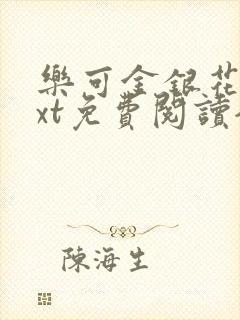 樂可金銀花
xt免費閱讀
陳海生